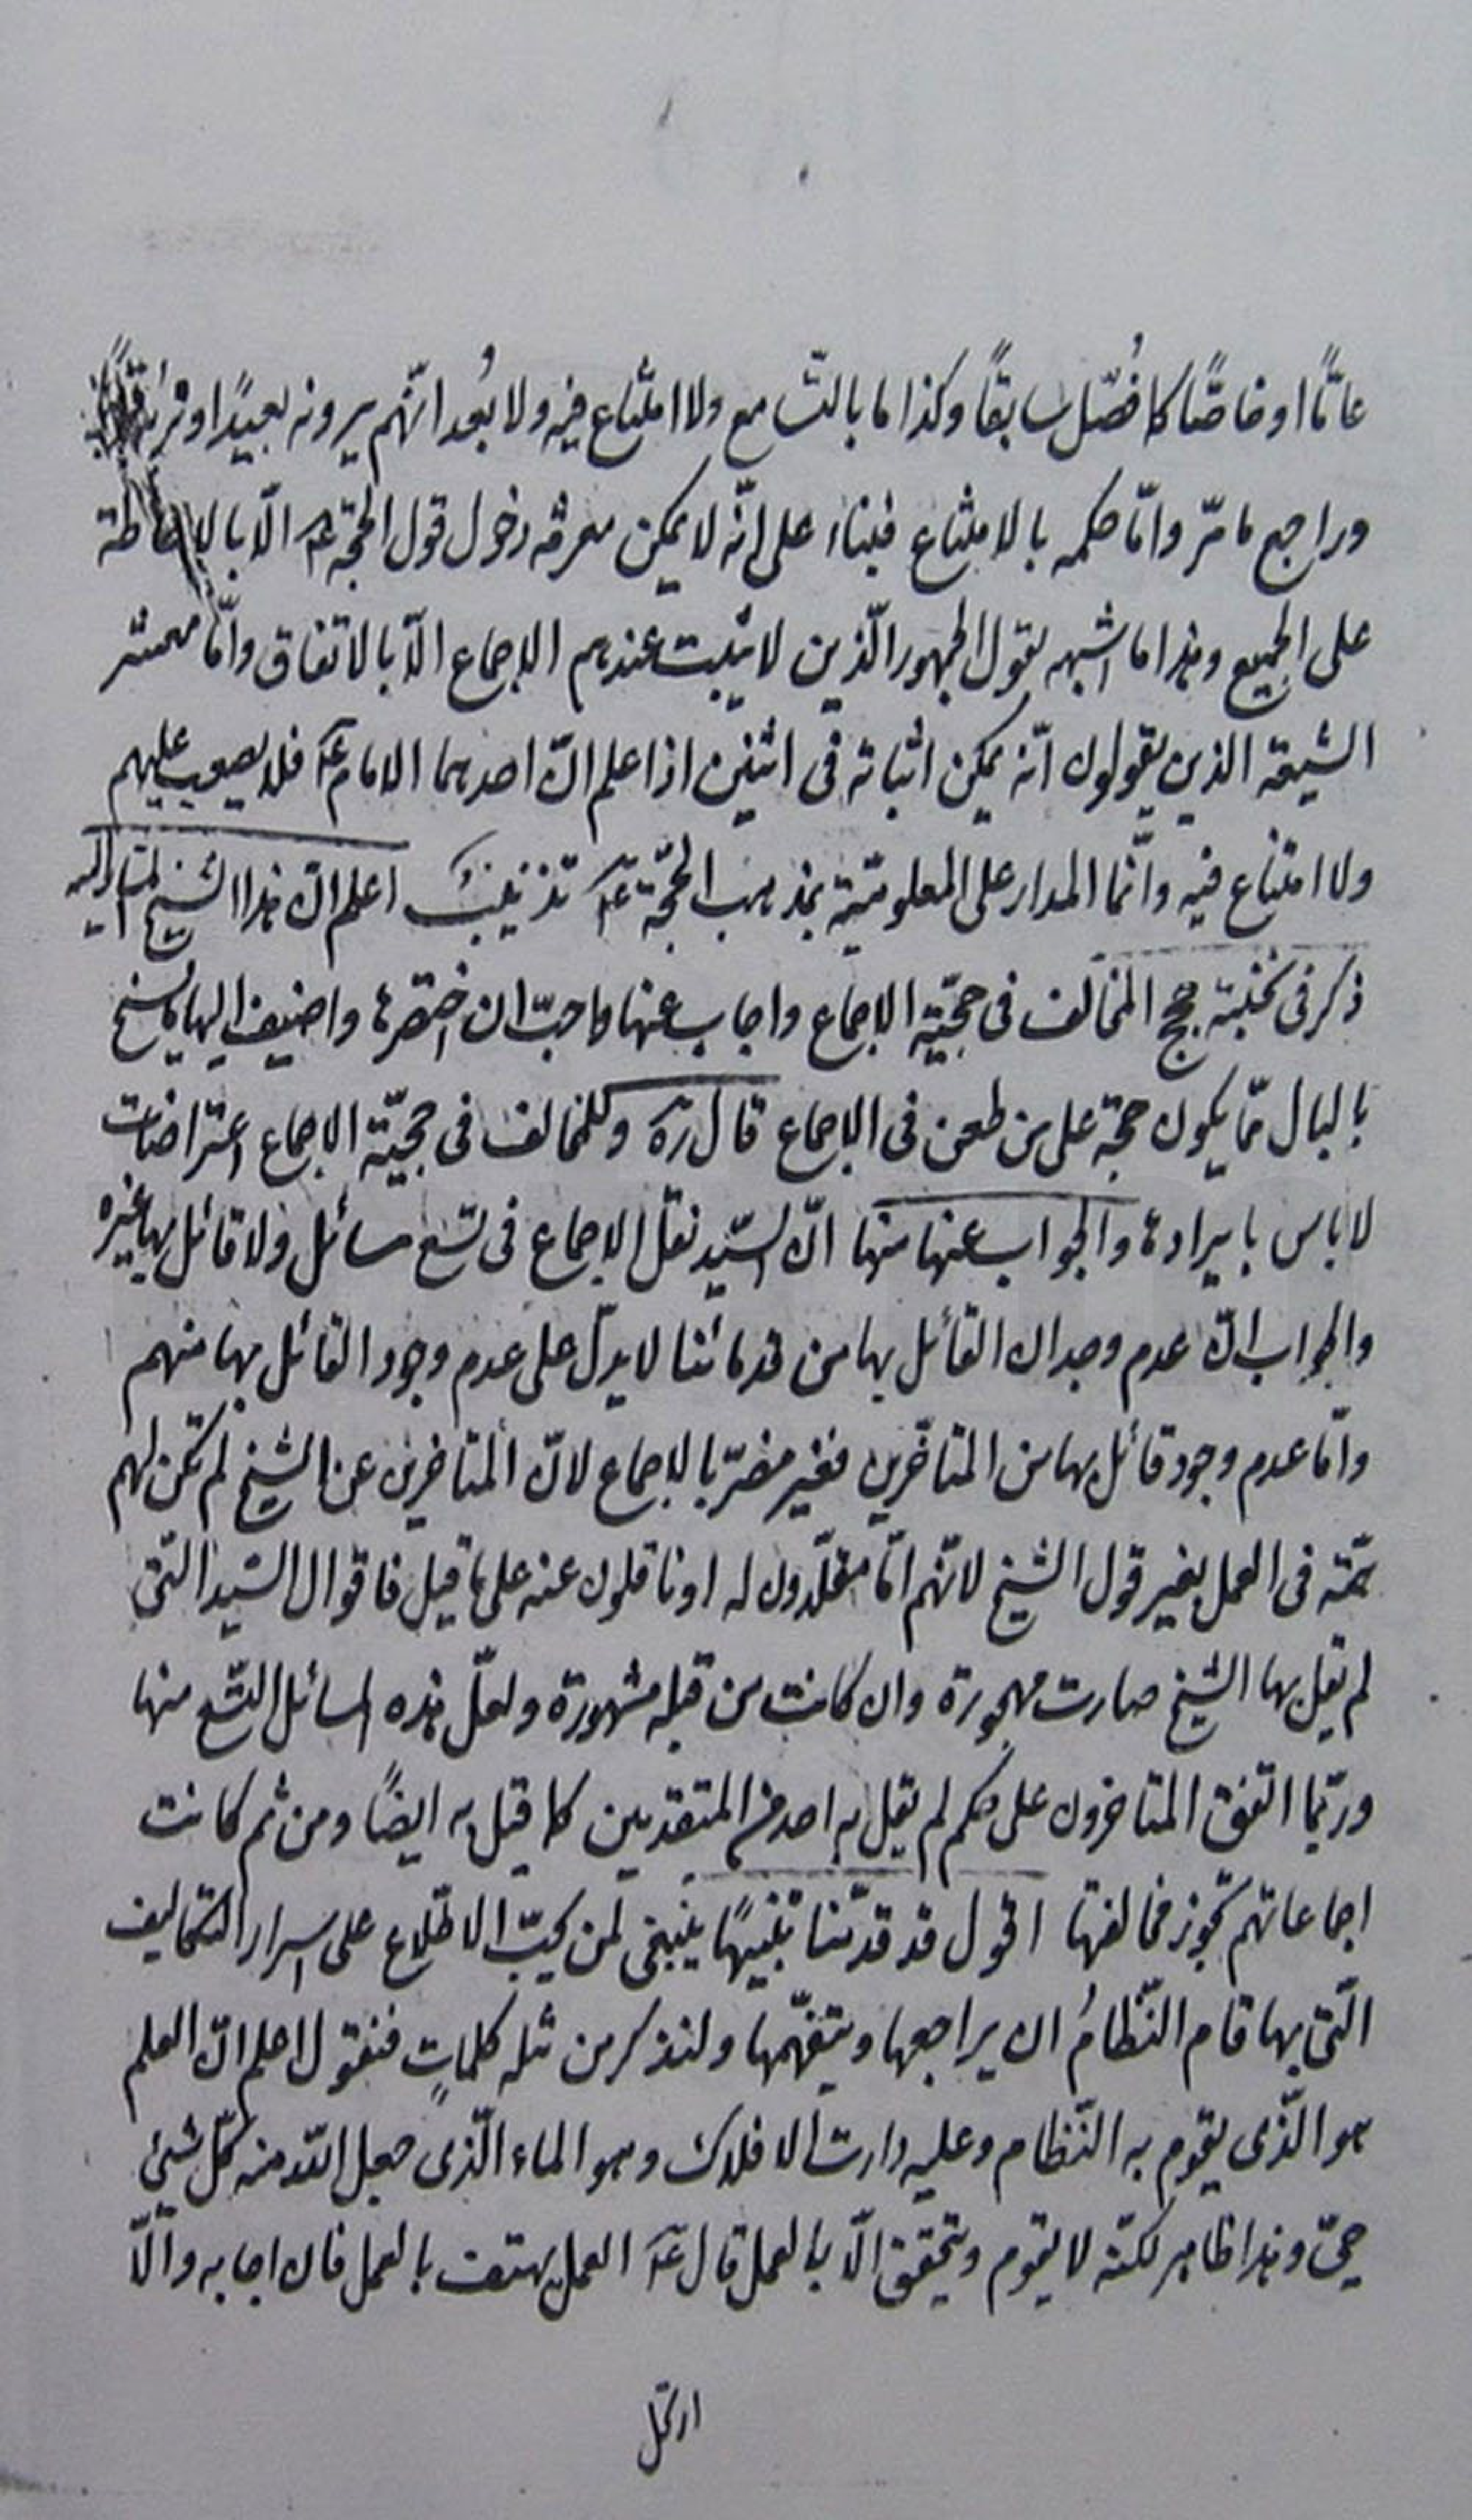 عامًّا او خاصًّا كما فُصّل سابقًا وكذا ما بالتسامع ولا امتناع فيه ولا بُعد انّهم يرونه بعيدًا او نريه قريبًا
وراجع ما مرّ وامّا حكمه بالامتناع فبناء على انّه لا يمكن معرفة دخول قول الحجّة عه الّا بالاحاطة
على الجميع وهذا ما اشبهه بقول الجمهور الّذين لا يثبت عندهم الاجماع الّا بالاتفاق وامّا معشر
الشيعة الذين يقولون انّه يمكن اثباته فى اثنين اذا علم انّ احدهما الامام عه فلا يصعب عليهم
ولا امتناع فيه وانّما المدار على المعلوميّة بمذهب الحجّة عه تذنيب اعلم انّ هذا الشيخ المشار اليه
ذكر فى نخبته حجج المخالف فى حجيّة الاجماع واجاب عنها فاحبّ ان اختصرها واضيف اليها ما يسنح
بالبال ممّا يكون حجة على من طعن فى الاجماع قال ره وللمخالف فى حجيّة الاجماع اعتراضات
لا باس بايرادها والجواب عنها منها انّ السّيد نقل الاجماع فى تسع مسائل ولا قائل بها غيره
والجواب انّ عدم وجدان القائل بها من قدمائنا لا يدلّ على عدم وجود القائل بها منهم
وامّا عدم وجود قائل بها من المتاخّرين فغير مضرّ بالاجماع لانّ المتاخرين عن الشيخ لم تكن لهم
همّة فى العمل بغير قول الشيخ لانّهم امّا مقلّدون له او ناقلون عنه على ما قيل فاقوال السّيد الّتى
لم يقل بها الشيخ صارت مهجورة وان كانت من قبله مشهورة ولعلّ هذه المسائل التّسع منها
وربّما اتفق المتاخرون على حكم لم يقل به احد من المتقدمين كما قيل به ايضًا ومن ثم كانت
اجماعاتهم تجوز مخالفتها اقول قد قدّمنا تنبيهًا ينبغى لمن يحبّ الاطّلاع على اسرار التكاليف
الّتى بها قام النّظامُ ان يراجعها ويتفهّمها ولنذكر من مثله كلماتٍ فنقول اعلم انّ العلم
هو الّذى يقوم به النّظام وعليه دارت الافلاك وهو الماء الّذى جعل اللّه منه كلّ شيئ
حيّ وهذا ظاهر لكنّه لا يقوم ويتحقق الّا بالعمل قال عه العمل يهتف بالعمل فان اجابه والّا
ارتحل